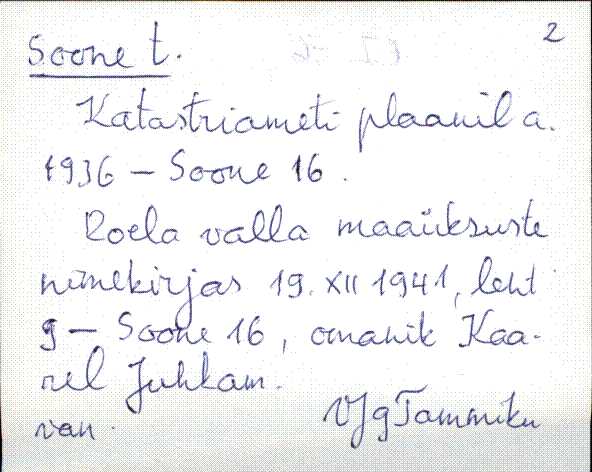 2
Soone t.
Katastriameti plaanil a.
1936 – Soone 16.
Roela valla maaüksuste
nimekirjas 19. XII 1941, leht
9 – Soone 16, omanik Kaa-
rel Juhkam.
VJg Tammiku
van.